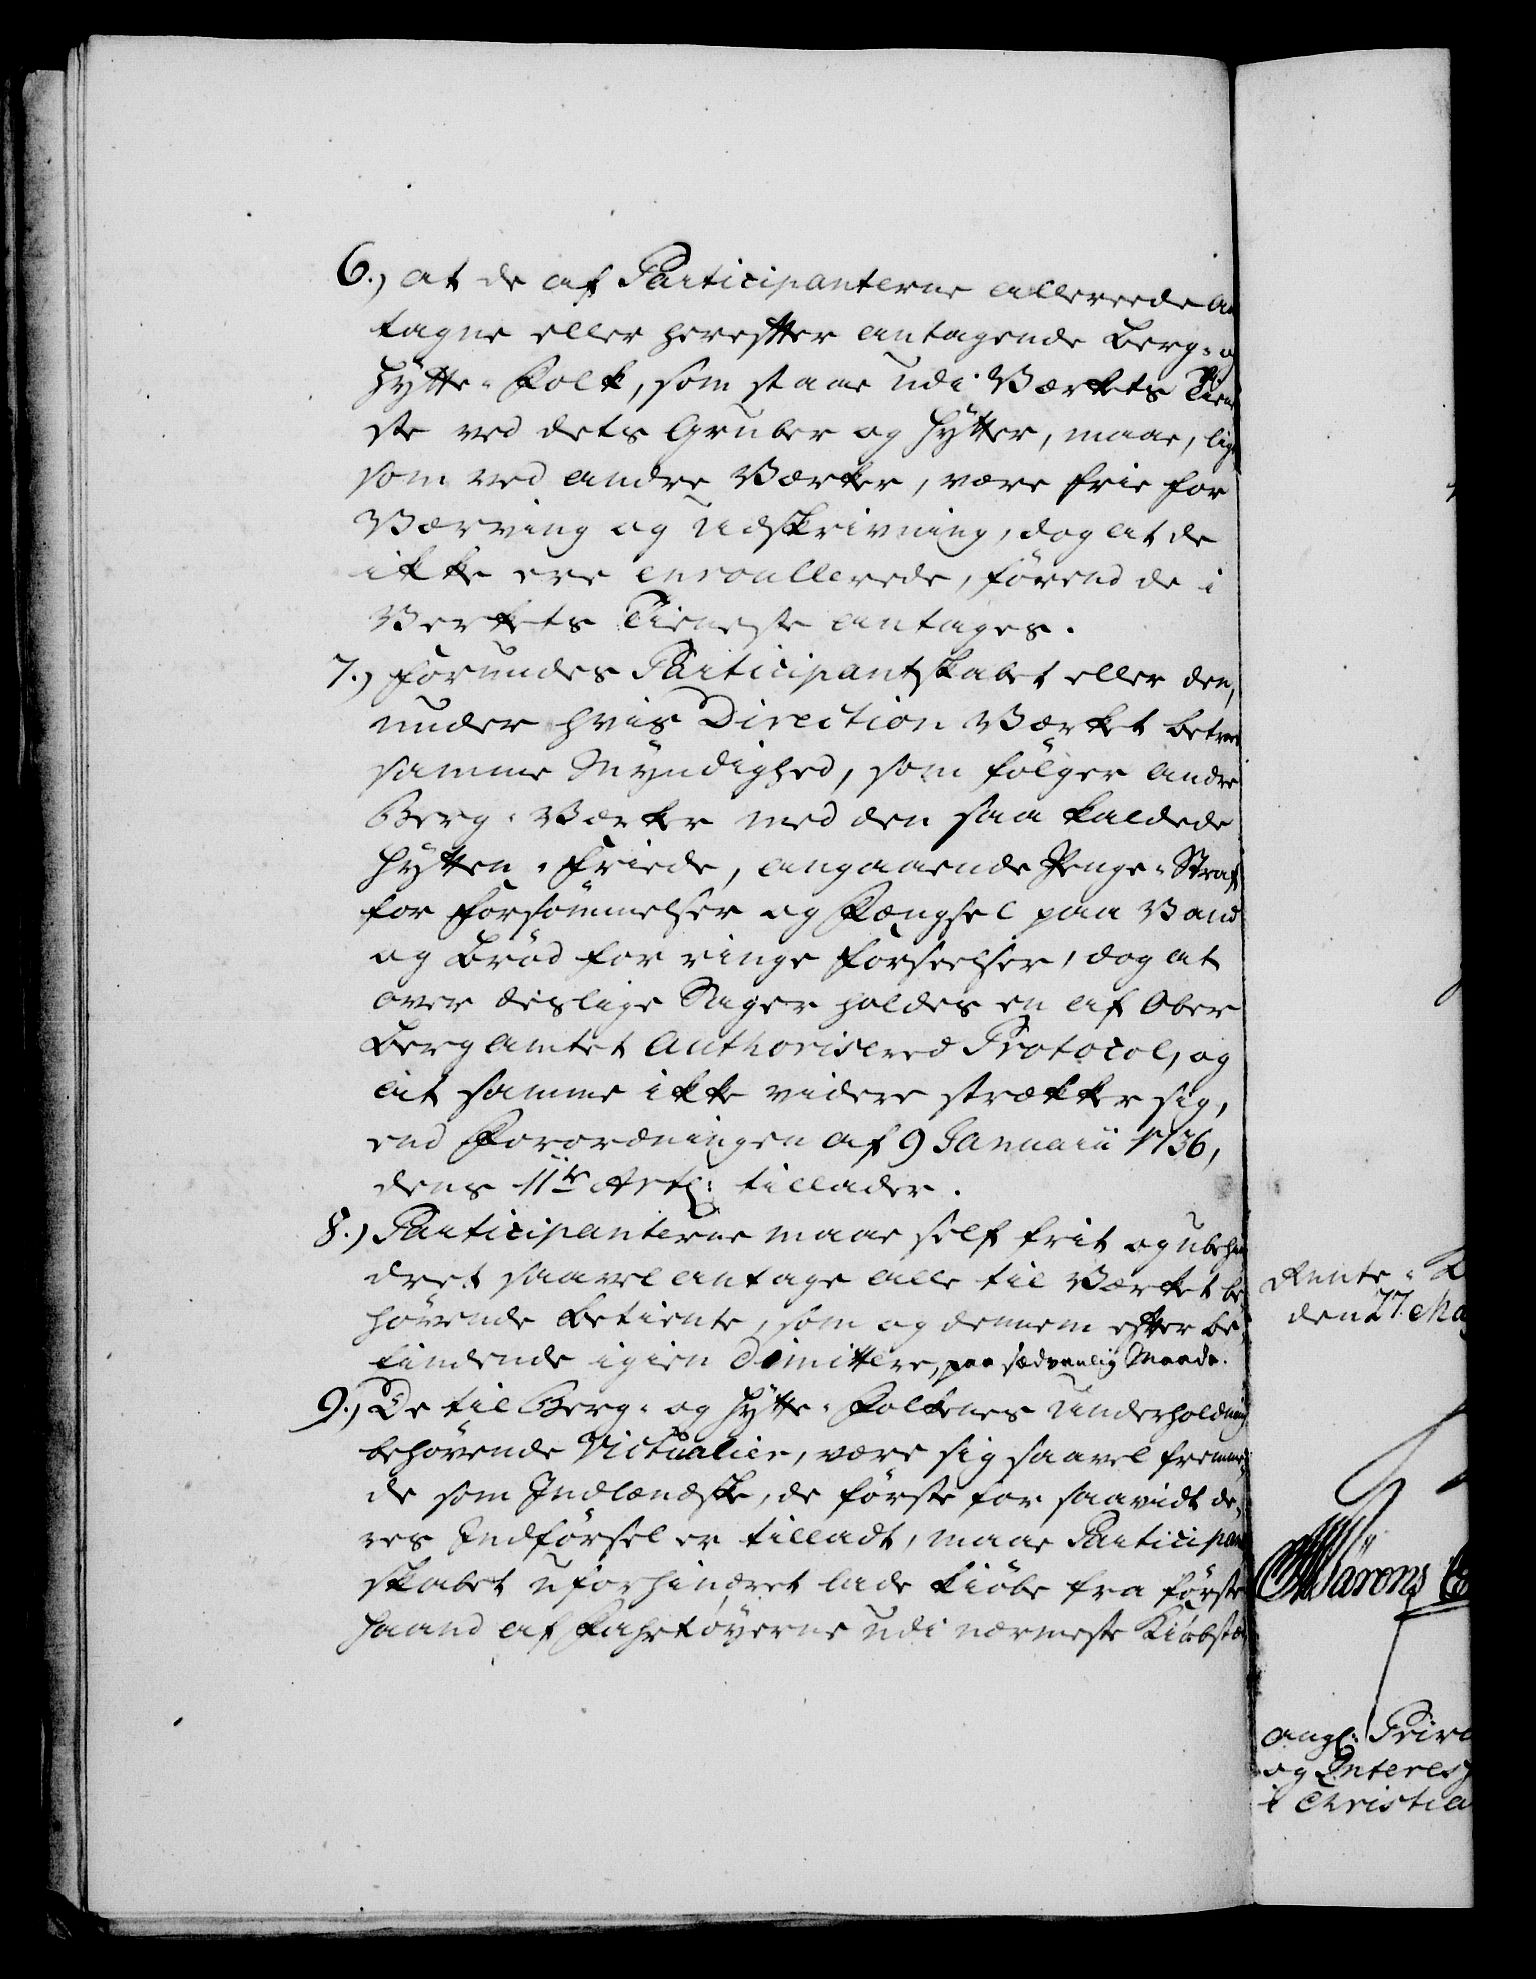 6.) at de af Participanterne allereede an
tagne eller herefter antagende Berg- og
Hÿtte-Folk, som staae udi Værkets Tiene
ste ved dets Gruber og Hÿtter, maae, lige
som ved andre Værker, være frie for
Værving og Udskrivning, dog at de
ikke ere enroullerede, förend de i
Verkets Tieneste antages.
7.) Forundes Participantskabet eller den,
under hvis Direction Værket betroes
samme Mÿndighed, som fölger andre
Berg-Værker med den saa kaldede
Hÿtten-Friede, angaaende Penge-Straf
for Forsömmelser og Fængsel paa Vand
og Bröd for ringe Forseelser, dog at
over deslige Sager holdes en af Ober
Berg amtet Authoriseret Protocol, og
at samme ikke videre strækker sig,
end Forordningen af 9 Januarii 1736,
dens 11te Artl: tillader.
8.) Participanterne maae self frit og ubehin
dret saavel antage alle til Værket be-
hövende Betiente, som og dennem efter be-
findende igien dimittere, paa sædvanlig Maade.
9.) De til Berg- og Hÿtte-Folkenes Underholdning
behövende Victualier, være sig saavel fremme-
de som Indlændske, de förste for saavidt de-
res Indförsel er tilladt, maae Participant
skabet uforhindret lade kiöbe fra förste
Haand af Fahrtöÿerne udi nærmeste Kiöbstæ
Rente-K
den 27. Maj
Wärens
angl: Privi
og Interess
i Christia